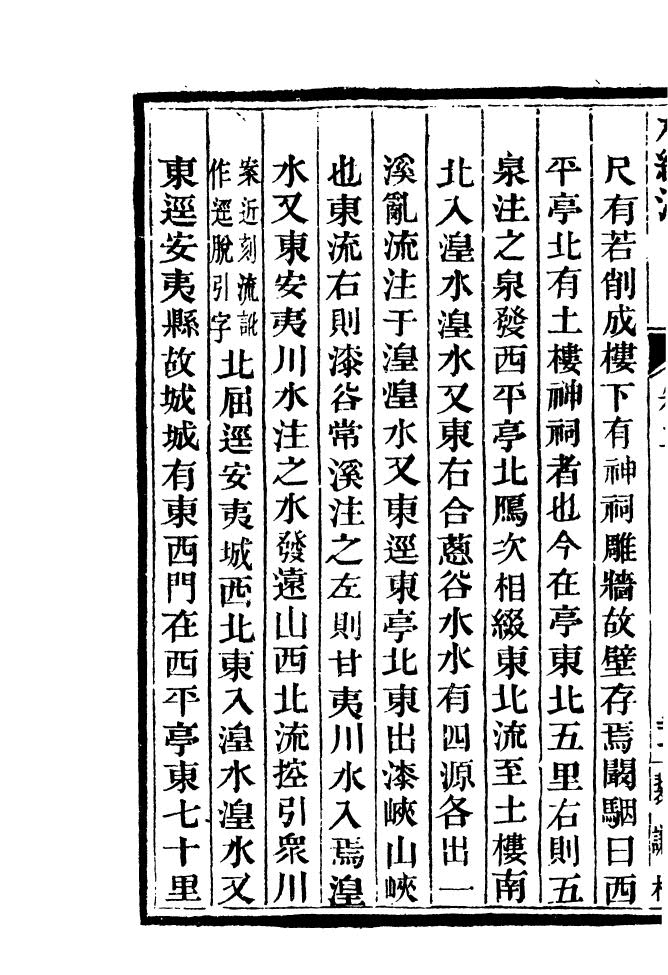 水經注
尺有若削成樓下有神祠雕牆故壁存焉闞駰曰西
平亭北有土樓神祠者也今在亭東北五里右則五
泉注之泉發西平亭北鴈次相綴東北流至土樓南
北入湟水湟水又東右合蔥谷水水有四源各出一
溪亂流注于湟湟水又東逕東亭北東出漆峽山峽
也東流右則漆谷常溪注之左則甘夷川水入焉湟
水又東安夷川水注之水發遠山西北流控引眾川
案近刻流訛
作逕脫引字
北屈逕安夷城西北東入湟水湟水又
東逕安夷縣故城城有東西門在西平亭東七十里